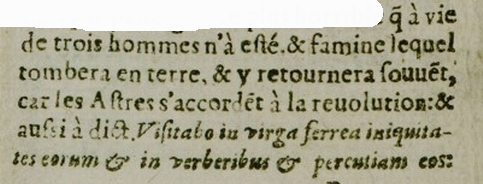 q̃ à vie
de trois hommes n'à esté.& famine lequel
tombera en terre, & y retournera souuẽt,
car les Astres s'accordẽt à la reuolution:&
aussi à dict. Visitabo in virga ferrea iniquita-
tes eorum & in verberibus & percutiam eos: